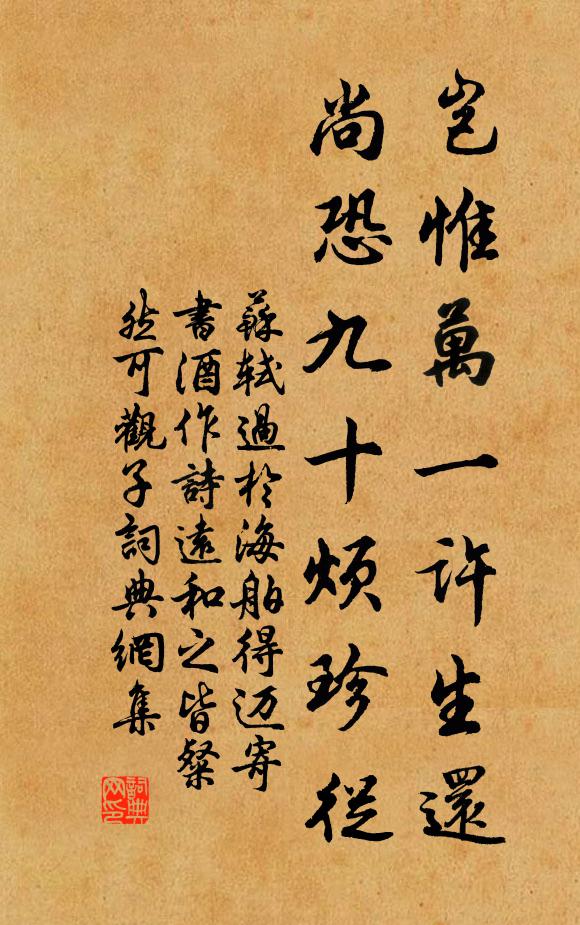 豈惟萬一許生還
尚恐九十煩珍從
蘇軾過於海舶得迈寄
書酒作詩遠和之皆粲
然可觀子詞典網集
詞典
网印